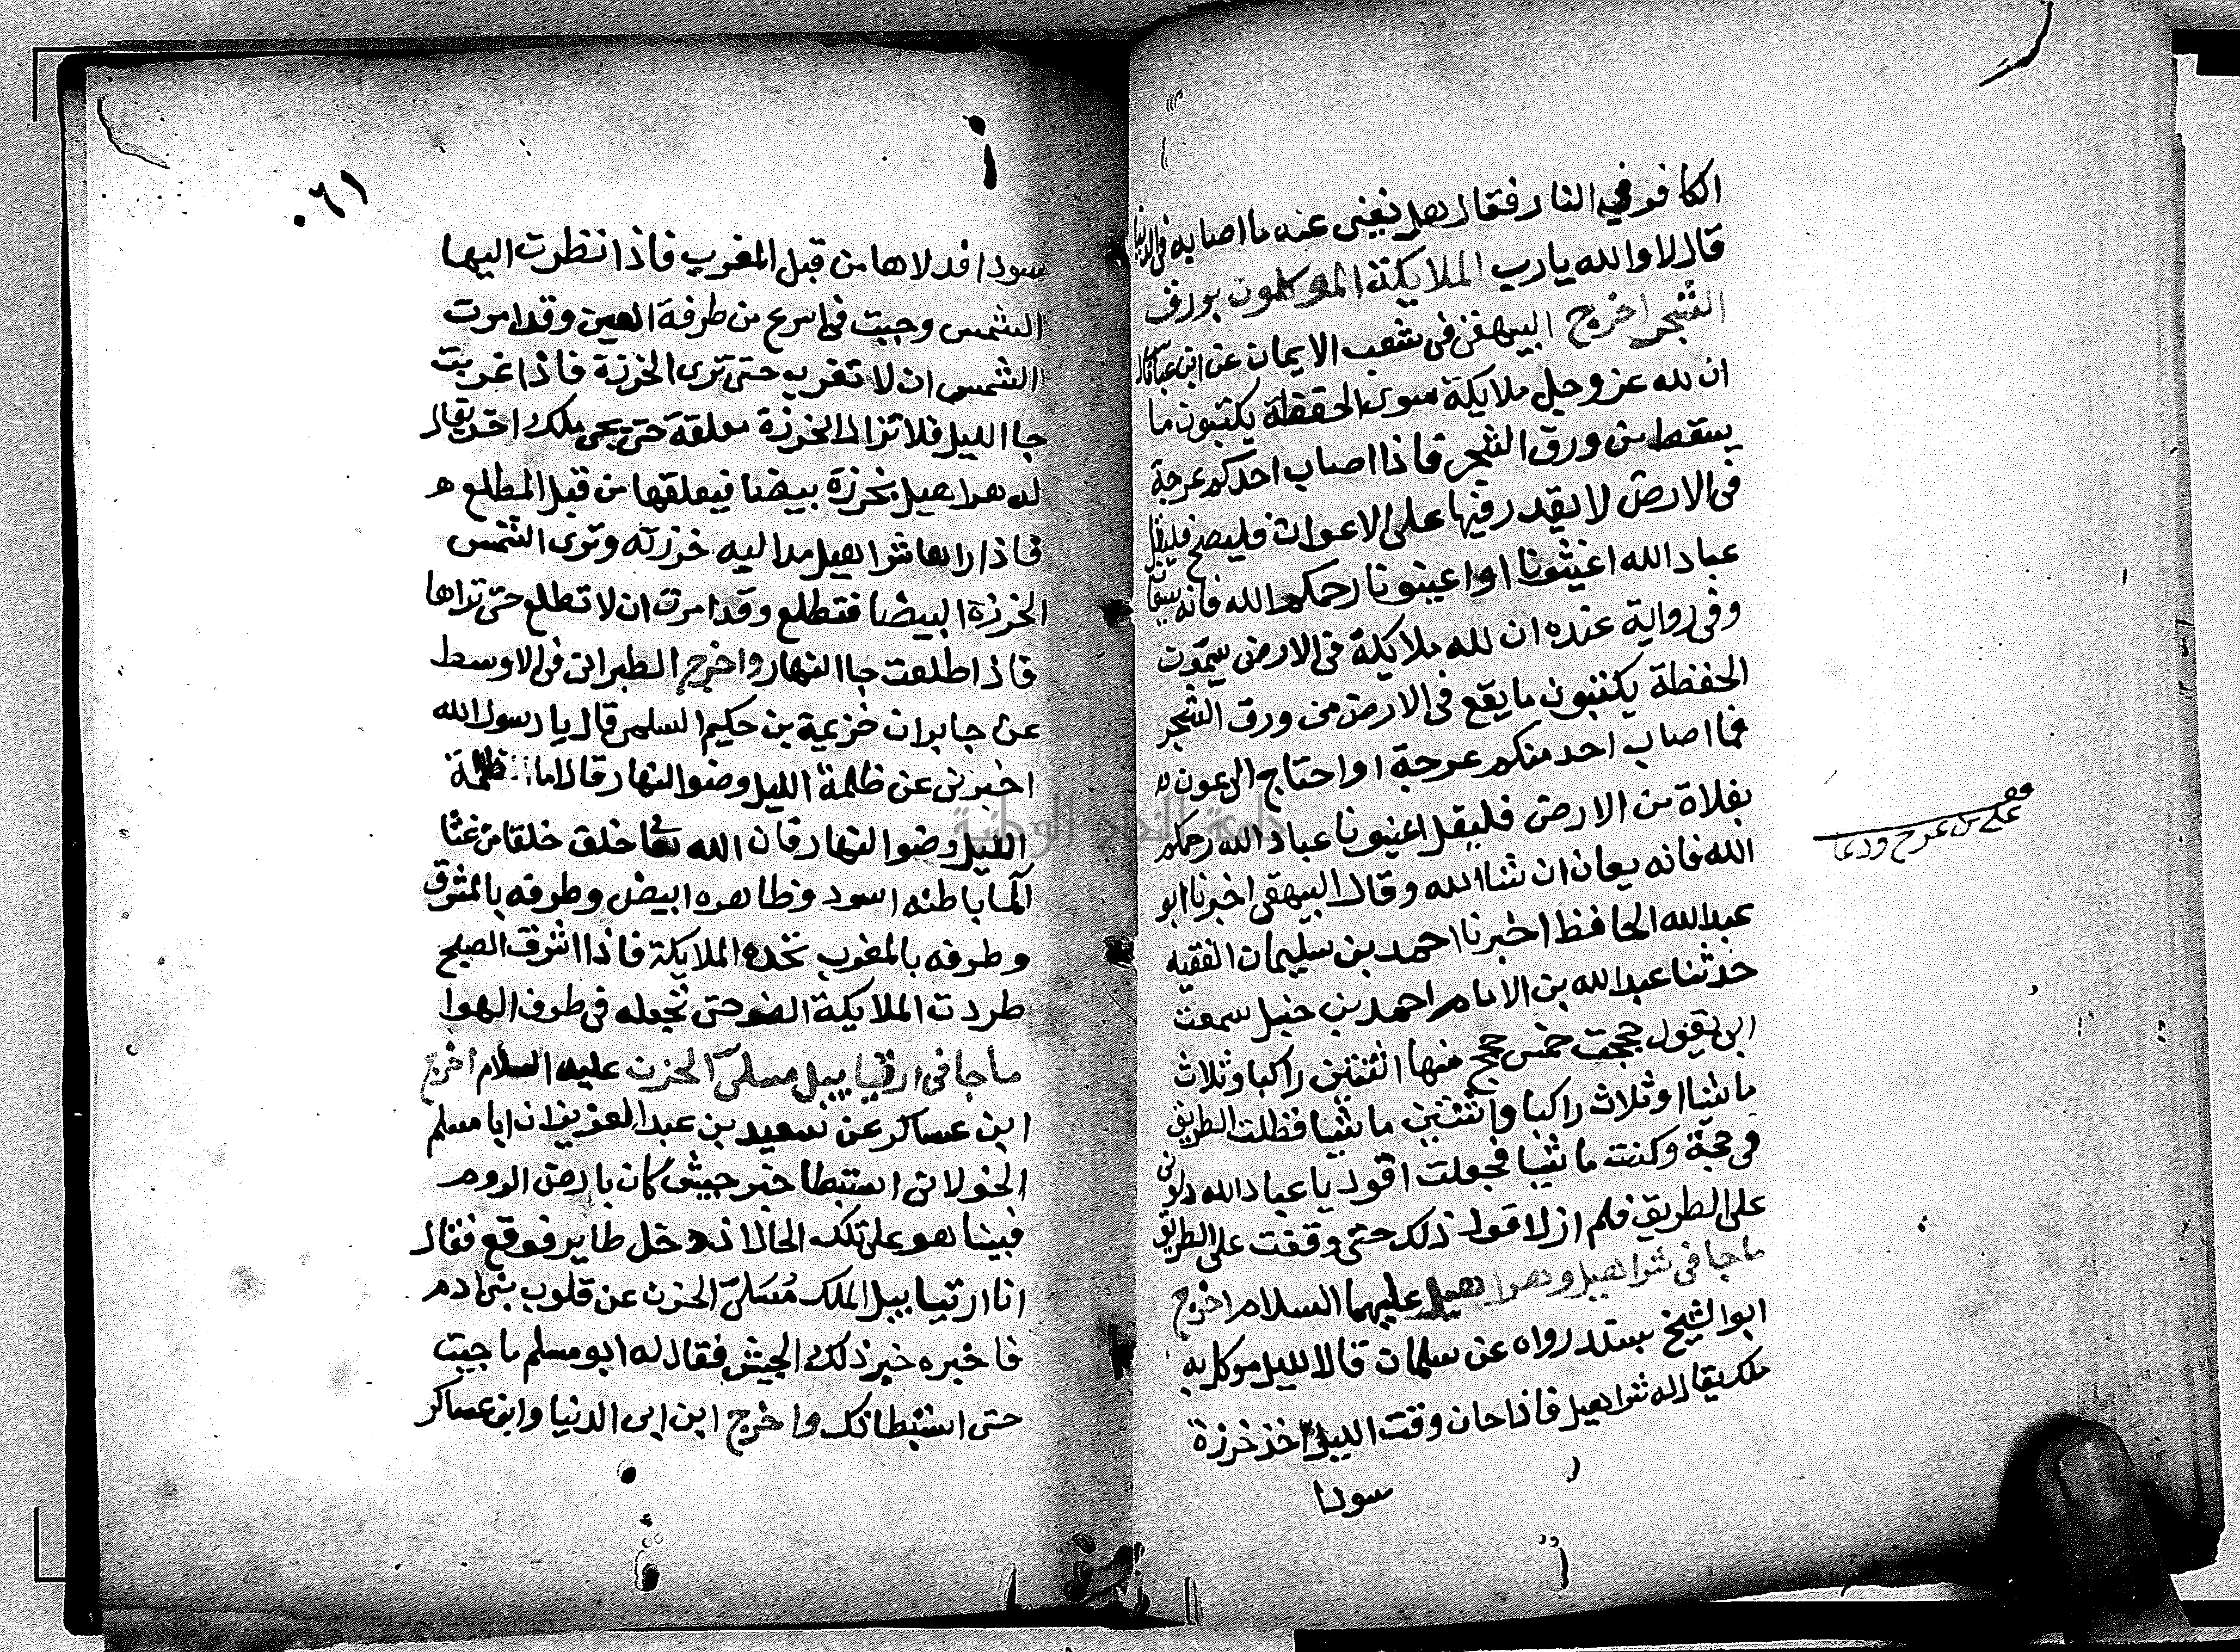 الكافر في النار فقال هل يغنى عنه ما اصابه في الدنيا
قال لا والله يا رب الملايكة الموكلون بورق
الشجر اخرج البيهقي في شعب الايمان عن ابن عباس قال
ان لله عز وجل ملايكة سوى الحفظة يكتبون ما
يسقط من ورق الشجر فاذا اصاب احدكم عرجة
في الارض لا يقدر فيها على الاعوان فليصح فليقل
عباد الله اغيثونا او اعينونا رحمكم الله فانه سيعان
وفي رواية عنده ان لله ملايكة في الارض يسمون
الحفظة يكتبون ما يقع في الارض من ورق الشجر
فما اصاب احد منكم عرجة او احتاج الى عون
بفلاة من الارض فليقل اعينونا عباد الله رحمكم
الله فانه يعان ان شا الله وقال البيهقي اخبرنا ابو
عبد الله الحافظ اخبرنا احمد بن سليمان الفقيه
حدثنا عبد الله بن الامام احمد بن حنبل سمعت
ابى يقول حججت خمس حجج منها اثنتين راكبا وثلاث
ماشيا او ثلاث راكبا واثنتين ماشيا فظلت الطريق
في حجة وكنت ماشيا فجعلت اقول يا عباد الله دلونى
على الطريق فلم ازل اقول ذلك حتى وقفت على الطريق
ما جا في شراهيل وهراهيل عليهما السلام اخرج
ابو الشيخ بسند رواه عن سلمان قال الليل موكل به
ملك يقال له شراهيل فاذا حان وقت الليل اخذ خرزة
سودا
على من عرج ودعا
٠٦١
سودا فدلاها من قبل المغرب فاذا نظرت اليها
الشمس وجبت في اسرع من طرفة العين وقد امرت
الشمس ان لا تغرب حتى ترى الخرزة فاذا غربت
جا الليل فلا تزال الخرزة معلقة حتى يجى ملك اخر يقال
له هراهيل بخرزة بيضا فيعلقها من قبل المطلع
فاذا راها شراهيل مد اليه خرزته وترى الشمس
الخرزة البيضا فتطلع وقد امرت ان لا تطلع حتى تراها
فاذا طلعت جا النهار واخرج الطبرانى في الاوسط
عن جابر ان خزيمة بن حكيم السلمى قال يا رسول الله
اخبرنى عن ظلمة الليل وضو النهار قال اما ظلمة
الليل وضو النهار فان الله تعا خلق خلقا من غثا
الما باطنه اسود وظاهره ابيض وطرفه بالمشرق
وطرفه بالمغرب تمده الملايكة فاذا اشرق الصبح
طردت الملايكة الضو حتى تجعله في طرف الهوا
ما جا في ارتياييل مسلى الحزن عليه السلام اخرج
ابن عساكر عن سعيد بن عبد العزيز ان ابا مسلم
الخولانى استبطا خبر جيش كان بارض الروم
فبينا هو على تلك الحال اذ دخل طاير فوقع فقال
انا ارتياييل الملك مُسَلى الحزن عن قلوب بنى ادم
فاخبره خبر ذلك الجيش فقال له ابو مسلم ما جيت
حتى استبطاتك واخرج ابن ابى الدنيا وابن عساكر
جامعة النجاح الوطنية